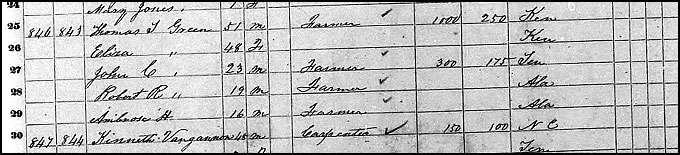 24 Mary Jones, 1 F
25 846 843 Thomas J Green 51 m Farmer ✓ 1000 250 Ken
26 Eliza " 48 F Ken
27 John C " 23 m Farmer ✓ 300 175 Ten
28 Robert R " 19 m Farmer ✓ Ala
29 Ambrose H 16 m Farmer ✓ Ala
30 847 844 Kenneth Vangannon 48 m Carpenter ✓ 150 100 N C
Tem